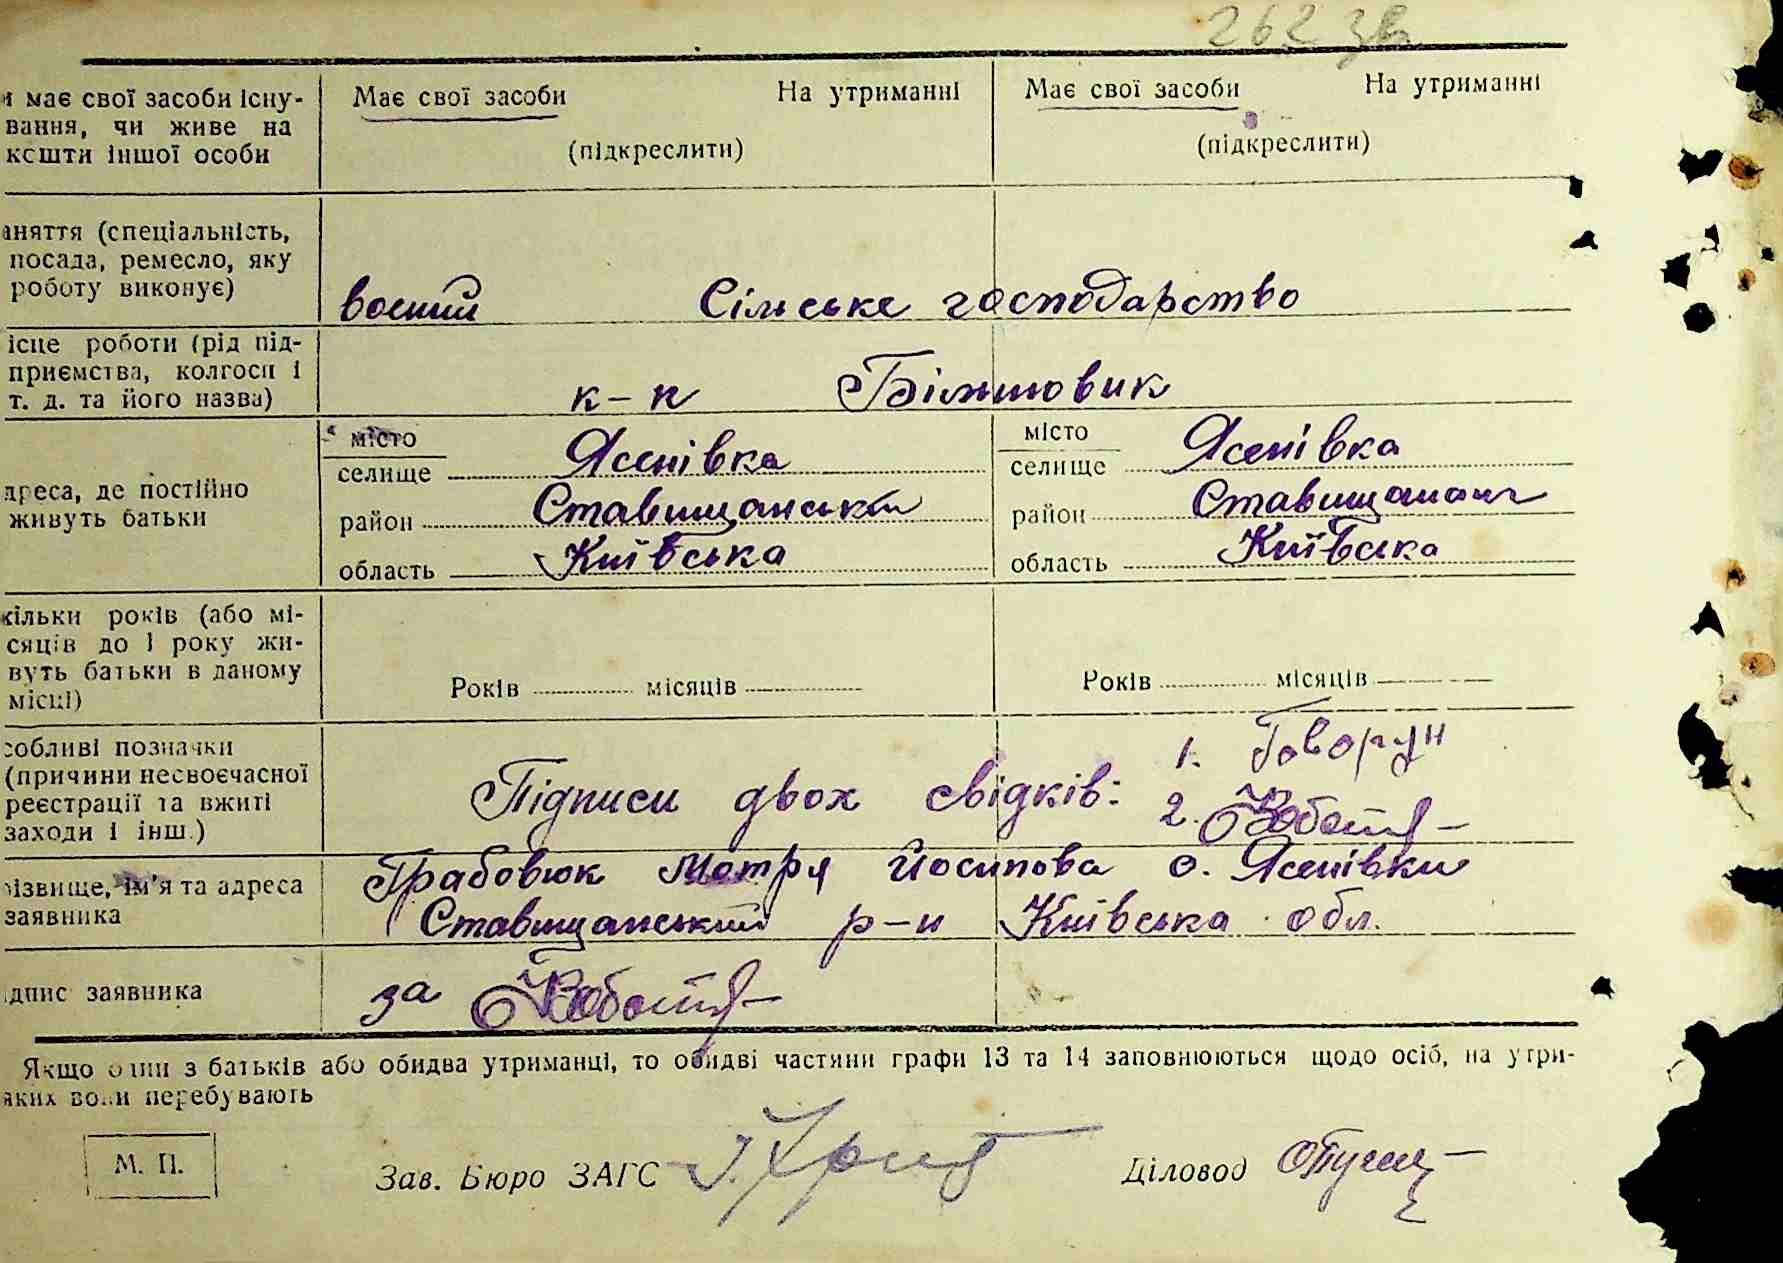 262 зв
и має свої засоби існу-
вання, чи живе на
кошти іншої особи
Має свої засоби На утриманні
(підкреслити)
Має свої засоби На утриманні
(підкреслити)
аняття (спеціальність,
посада, ремесло, яку
роботу виконує)
воєний Сільське господарство
ісце роботи (рід під-
приємства, колгосп і
т. д. та його назва)
к-п Більшовик
дреса, де постійно
живуть батьки
місто
селище Ясенівка
район Ставищанський
область Київська
місто
селище Ясенівка
район
область Київська
кільки років (або мі-
сяців до 1 року жи-
вуть батьки в даному
місці)
Років місяців
Років місяців
собливі позначки
(причини несвоєчасної
реєстрації та вжиті
заходи і інш.)
Підписи двох свідків:
1. Говорун
2.
різвище, ім'я та адреса
заявника
Грабовюк Мотря Йосипова с. Ясенівки
Ставищанський р-н Київська обл.
ідпис заявника
за
Якщо один з батьків або обидва утриманці, то обидві частини графи 13 та 14 заповнюються щодо осіб, на утри-
яких вони перебувають
М. П.
Зав. Бюро ЗАГС
Діловод